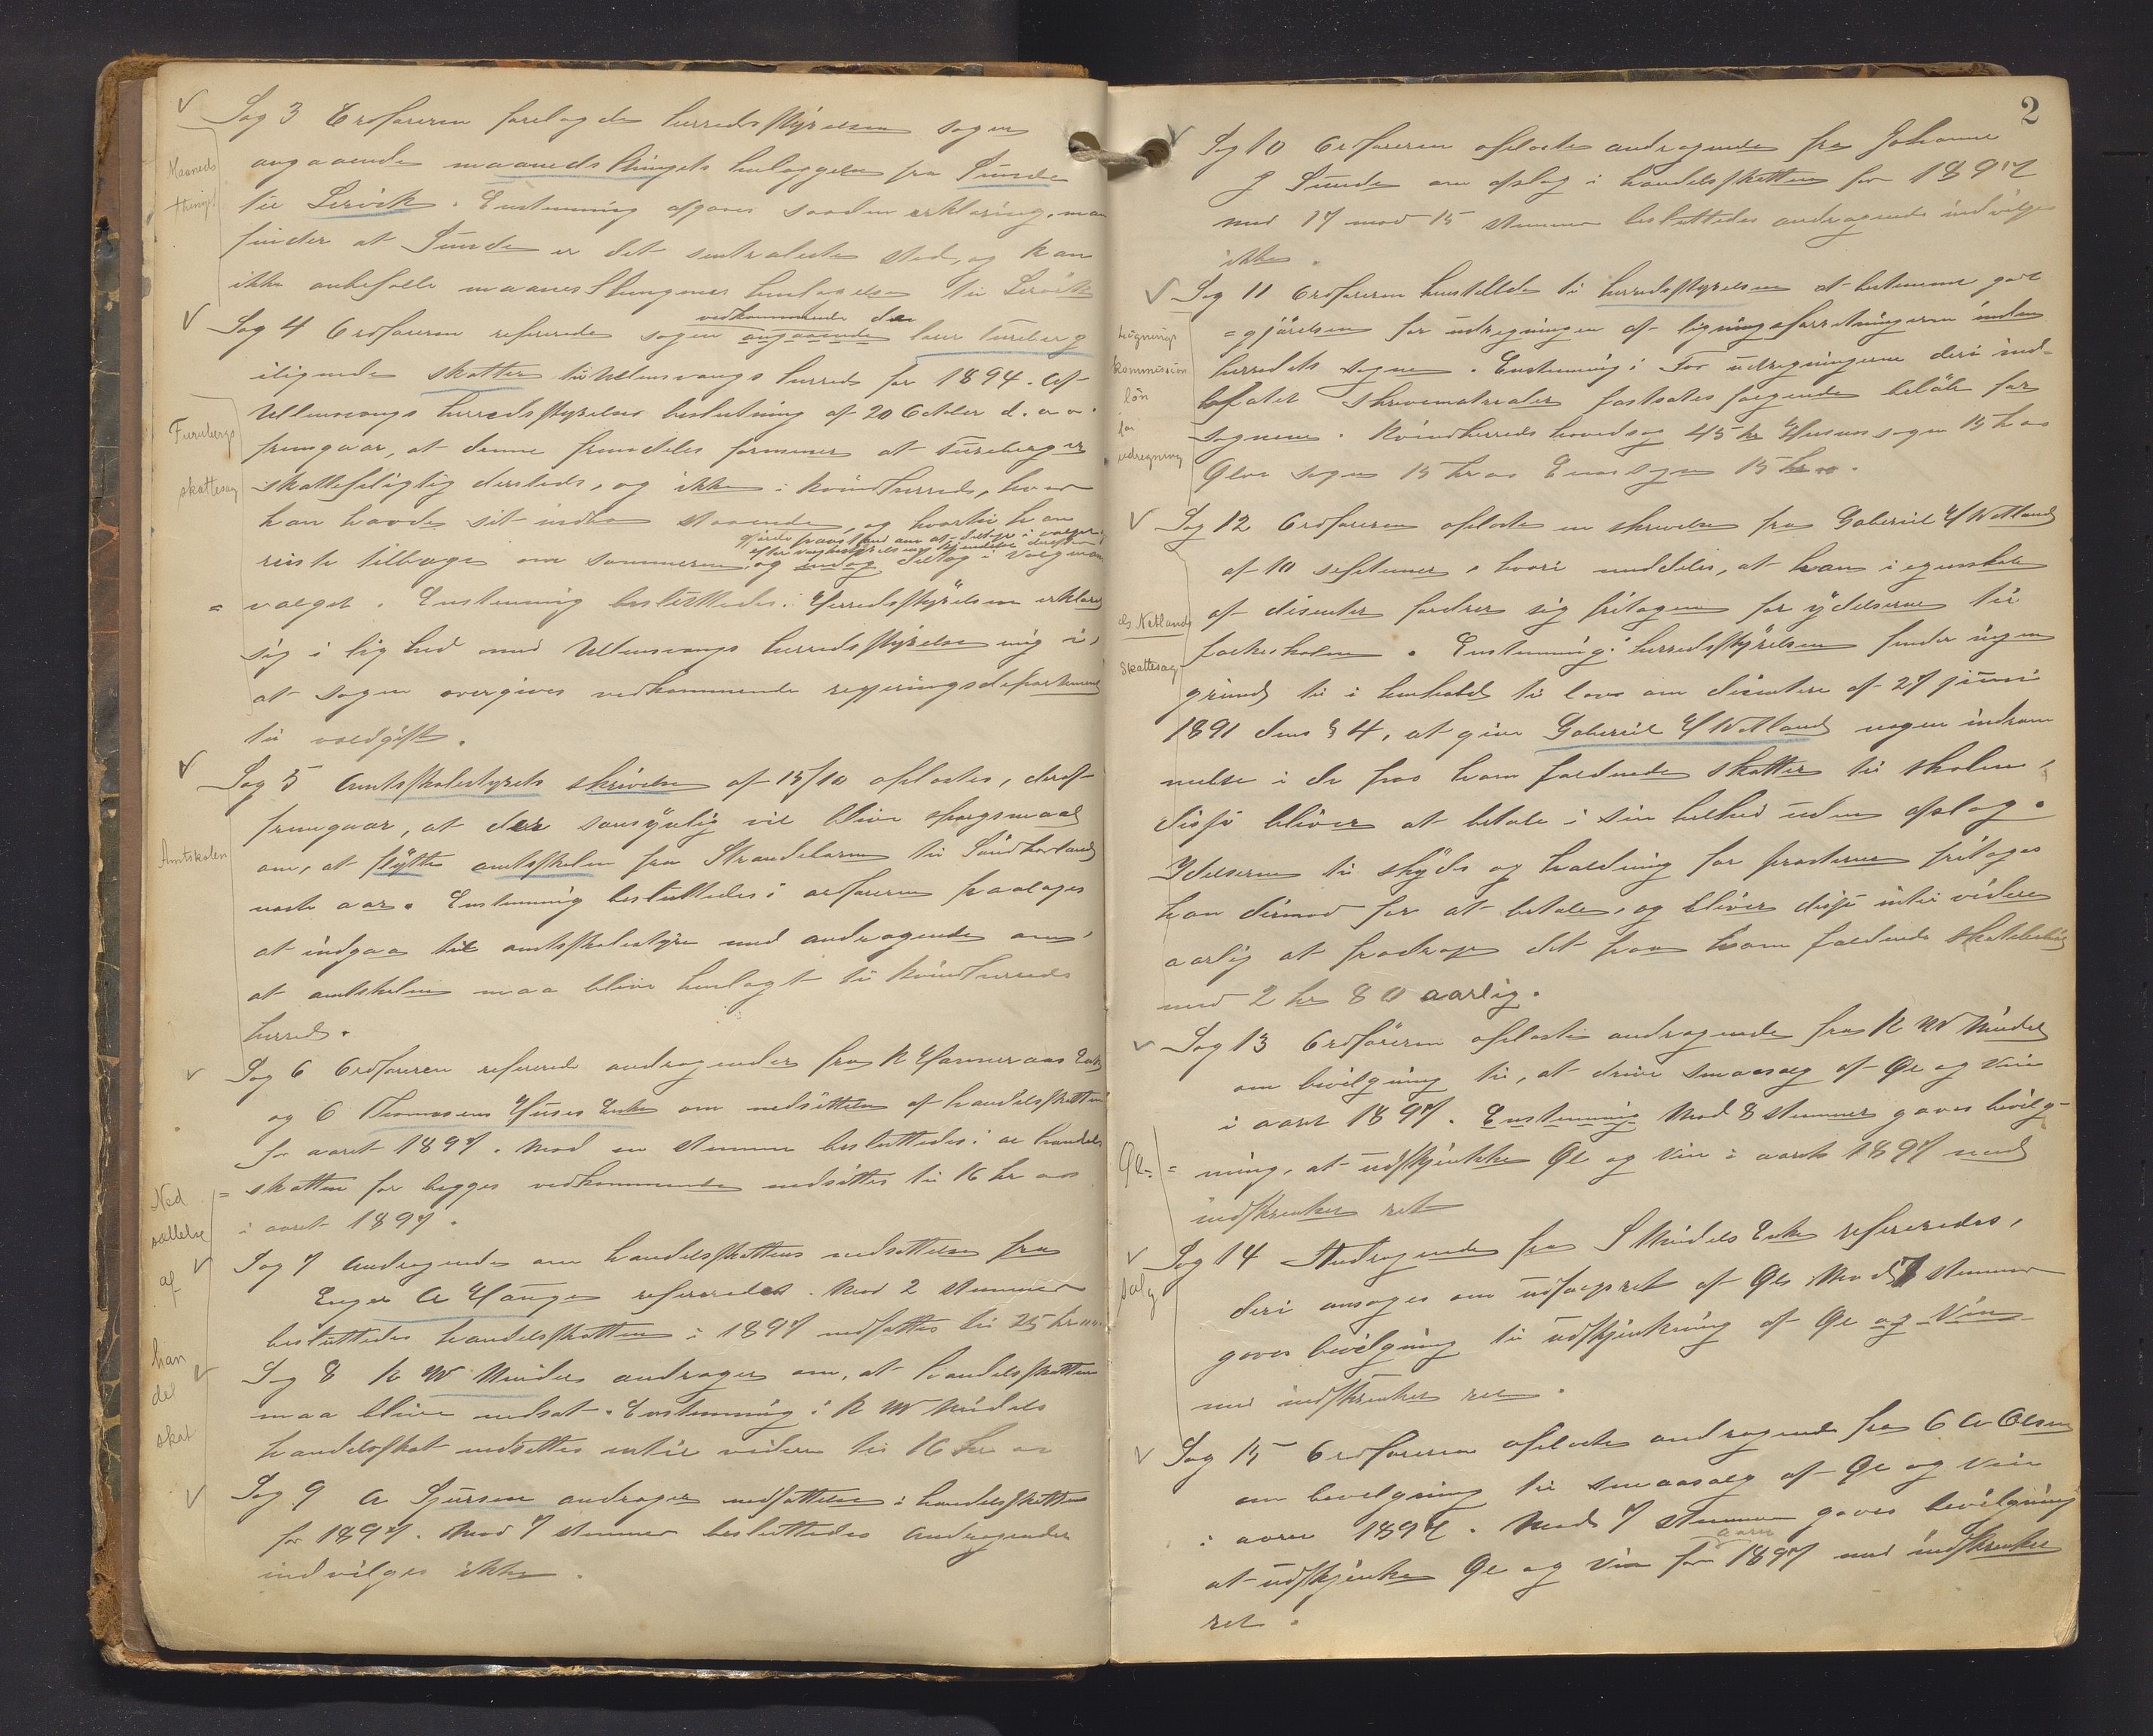 Sag 3 Ordføreren forelagde herredsstyrelsen sagen
Maaneds
thinget
angaaende maanedsthingets henlæggelse fra Sunde
til Lervik. Enstemmig afgaves saadan erklæring. man
finder at Sunde er det sentraleste sted, og kan
ikke anbefalle maanesthingenes henleggelse til Lervik
Sag 4 Ordføreren refererede sagen angaaende vedkommende den Furuberg
ilignede skatter til Ullensvangs herred for 1894. Af
Ullensvangs herredsstyrelses beslutning af 20 October d. a.
Furubergs
skattesag
fremgaar, at denne fremdeles formener at Furuberg er
skattepligtig dersteds, og ikke i Kvindherred, hvor
han havde sit indbo staaende, og hvortil han
gjorde paastand om at deltage i valget
reiste tilbage om sommeren og deltog i Valgmans
= valget. Enstemmig besluttedes: Herredsstyrelsen erklærer
sig i lighed med Ullensvangs herredsstyrelse enig i,
at sagen overgives vedkommende regjeringsdepartement
til voldgift.
Sag 5 Amtsskolestyrets skrivelse af 15/10 oplæstes, deraf
fremgaar, at der sansynlig vil blive spørgsmaal
Amtskolen
om, at flytte amtsskolen fra Strandebarm til Søndhordland
næste aar. Enstemmig besluttedes: ordføreren paalæges
at indgaa til amtsskolestyre med andragende om,
at amtskolen maa blive henlagt til Kvindherreds
herred.
Sag 6 Ordføreren refererede andragender fra K Hammeraas Enke
og O Thomasens Huses Enke om nedsættelse af handelsskatten
for aaret 1897. Mod en stemme besluttedes: at handels
= skatten for begges vedkommende nedsættes til 16 kr oo
i aaret 1897.
Ned
sættelse
af
han
del
skat
Sag 7 Andragende om handelsskattens nedsættelse fra
Enger A Hauge refereredes. Mod 2 stemmer
besluttedes handelsskatten i 1897 nedsættes til 25 kr oo
Sag 8 K W Mindes andrager om, at handelsskatten
maa blive nedsat. Enstemmig: K W Mindes
handelsskat nedsættes intil videre til 16 kr oo
Sag 9 A Sjursen andrager nedsættelse i handelsskatten
for 1897. Mod 7 stemmer besluttedes Andragendet
indvilges ikke.
2
Sag 10 Ordføreren oplæste andragende fra Johanne
J Sunde om afslag i handelsskatten for 1897
med 17 mod 15 stemmer besluttedes andragende indvilges
ikke.
Sag 11 Ordføreren henstillede til herredsstyrelsen at bestemme godt
= gjørelsen for udregningen af ligningsforretningerne inden
Lignings
kommission
løn
for
udregning
herredets sogne. Enstemmig: For udregningerne deri ind-
befatet skrivematrialer fastsates følgende beløb for
sognene. Kvindherreds hovedsogn 45 kr Husnes sogn 15 kr oo
Ølve sogn 15 kr oo Enes sogn 15 kr oo.
Sag 12 Ordføreren oplæste en skrivelse fra Gabriel H Netland
af 10 september, hvori meddeles, at han i egenskab
G Netlands
Skattesag
af disenter fordrer sig fritagen for ydelserne til
folkeskolen. Enstemmig: herredsstyrelsen finder ingen
grund til i henhold til lov om disentere af 27 juni
1891 dens § 4, at give Gabriel H Netland nogen indrøm
melse i de paa ham faldende skatter til skolen,
disse bliver at betale i sin helhed uden afslag.
Ydelserne til skyds og holdning for presterne fritages
han dermod for at betale, og bliver disse intil videre
aarlig at fradrage det paa ham faldende skattebeløb
med 2 kr 80 aarlig.
Sag 13 Ordføreren oplæste andragende fra K W Mindes
om bevilgning til, at drive smaasalg af Øl og Vin
i aaret 1897. Enstemmig Mod 8 stemmer gaves bevilg-
Øl-
= ning, at udskjenke Øl og Vin i aaret 1897 med
indskrenket ret
Sag 14 Andragende fra S Mindes Enke refereredes,
salg
deri ansøges om udsalgsret af Øl. Mod 7 stemmer
gaves bevilgning til udskjenkning af Øl og Vin
med indskrenket ret.
Sag 15 Ordføreren oplæste andragende fra O A Olsen
om bevilgning til smaasalg af Øl og Vin
i aaret 1897. Mod 7 stemmer gaves bevilgning
at udskjenke Øl og Vin for aaret 1897 med indskrenket
ret.